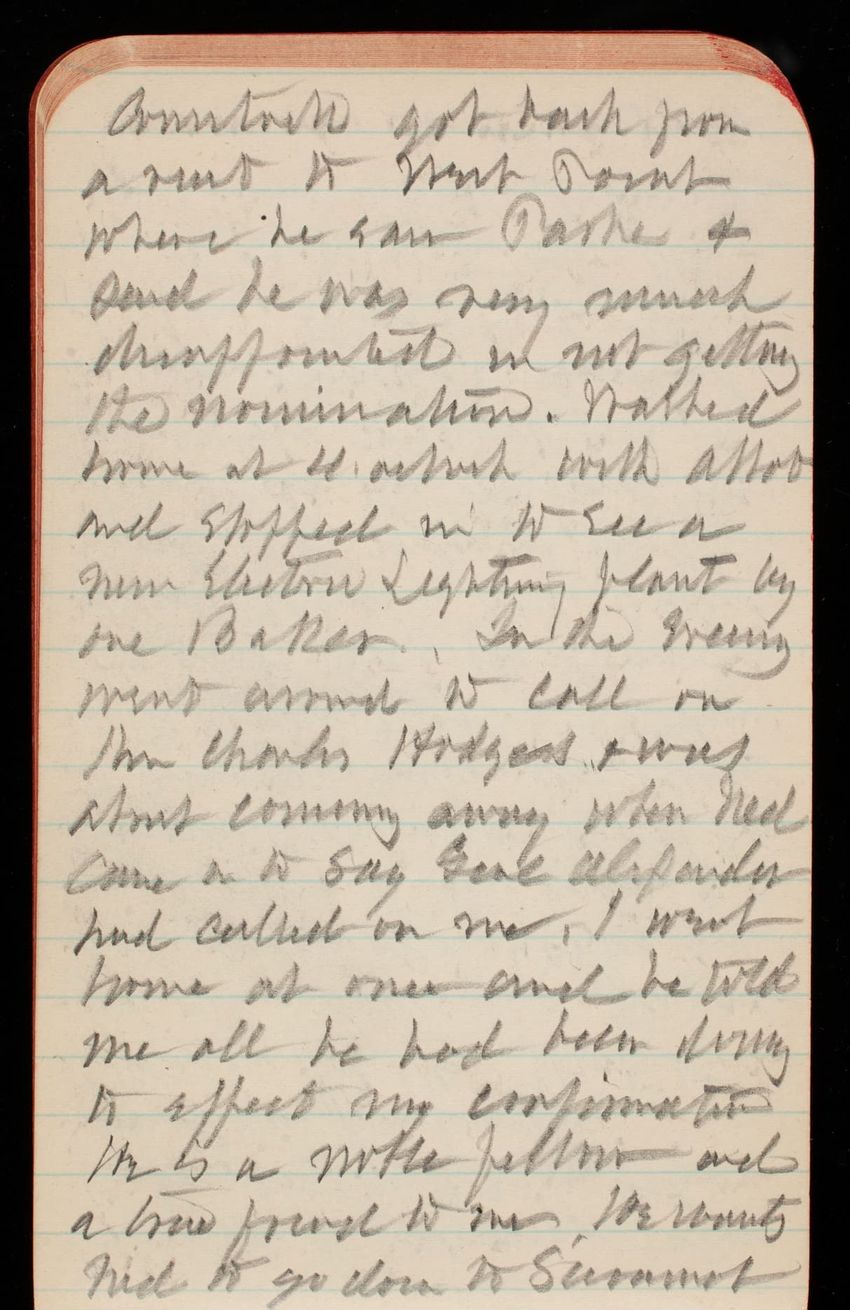 Comstock got back from
a visit to West Point
where he saw Parke &
said he was very much
disappointed in not getting
the nomination. Walked
home at 4 oclock with Abbot
and stopped in to see a
new Electric Lighting plant by
one Baker. In the Evening
went around to call on
Mrs Charles Hodges & was
about coming away when Ned
came in to say Genl Alexander
had called on me, I went
home at once and he told
me all he had been doing
to effect my confirmation
He is a noble fellow and
a true friend to me. He wants
Ned to go down to